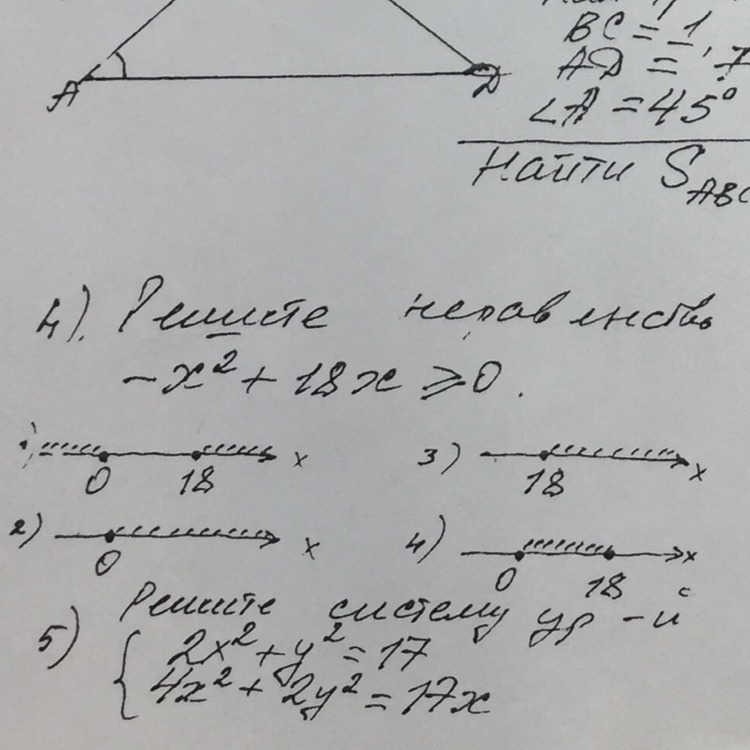 BC = 1
AD = 7
∠A = 45°
Найти S_ABC
A
D
4). Решите неравенство
-x² + 18x ≥ 0.
0 18 x
3) 18 x
2) 0 x
4) 0 18 x
Решите систему ур-й
5) { 2x² + y² = 17
4x² + 2y² = 17x